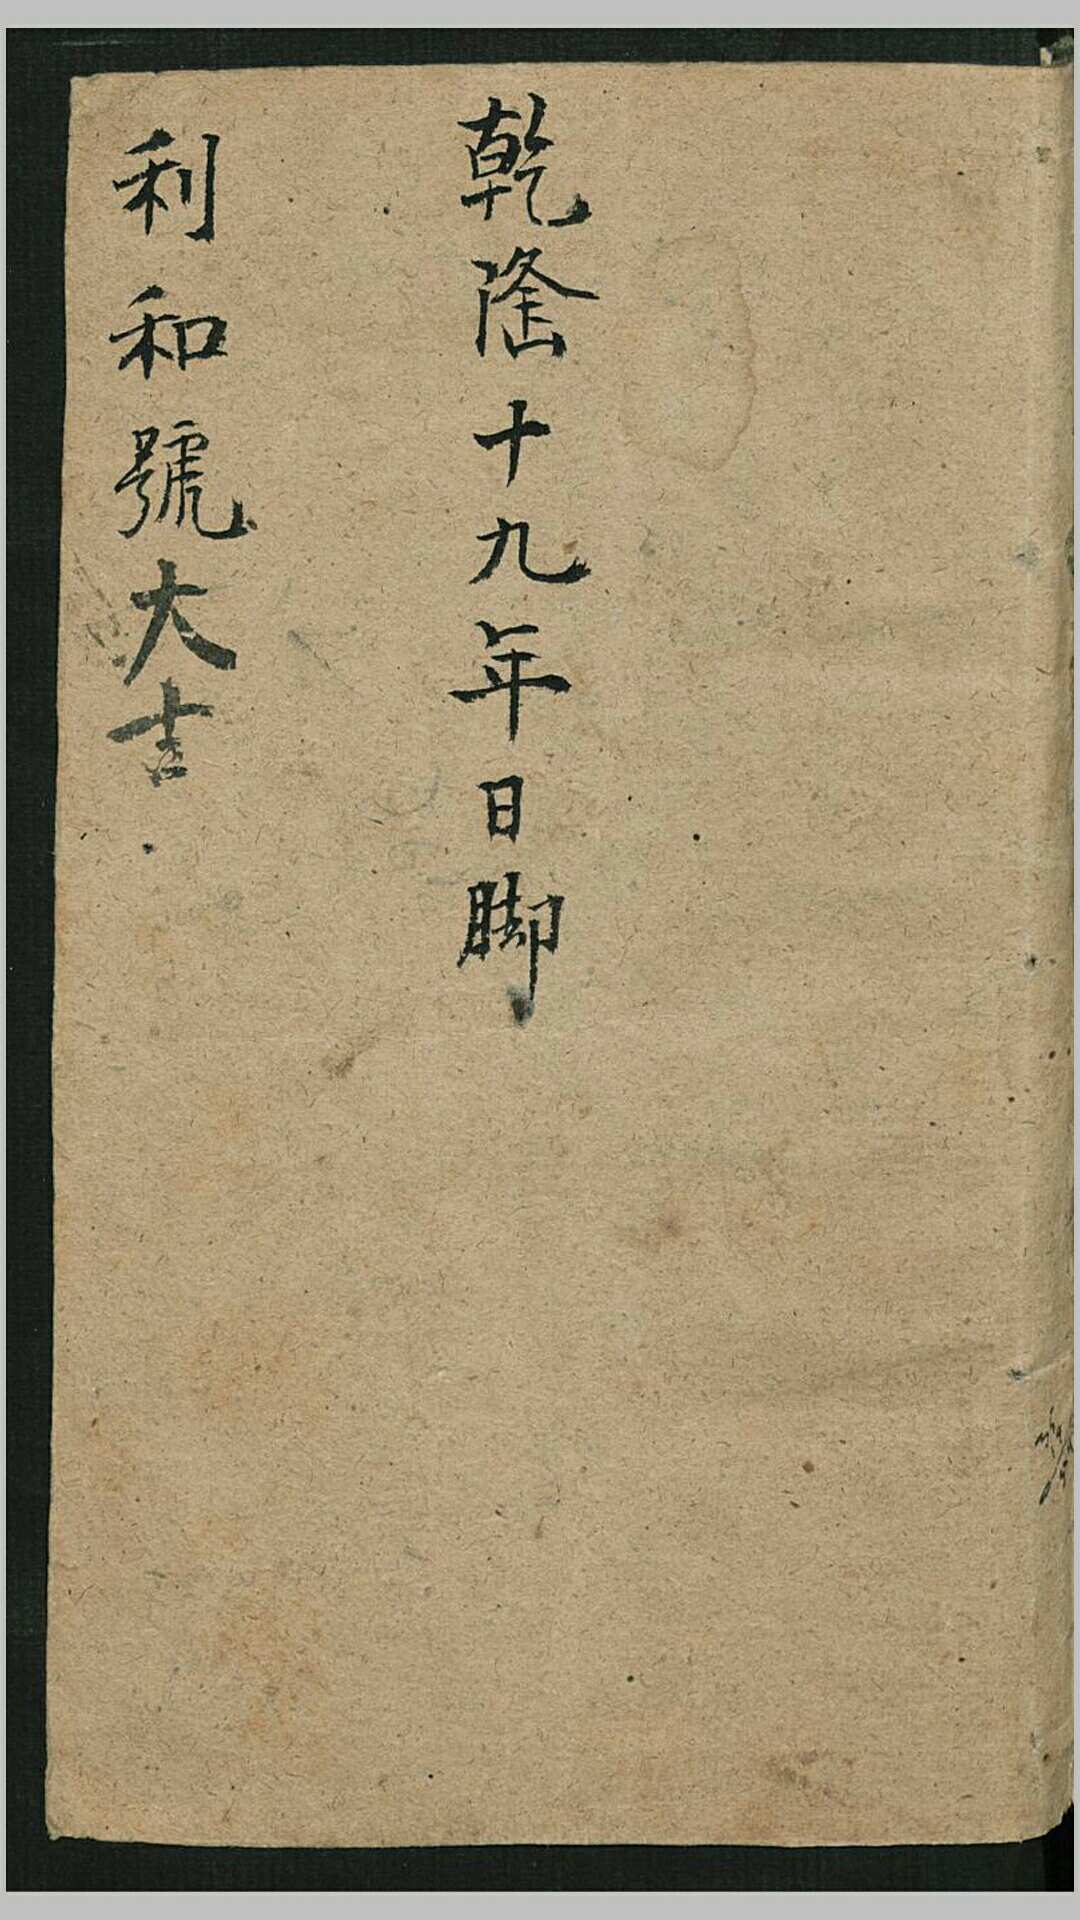 乾隆十九年日脚
利和號大吉